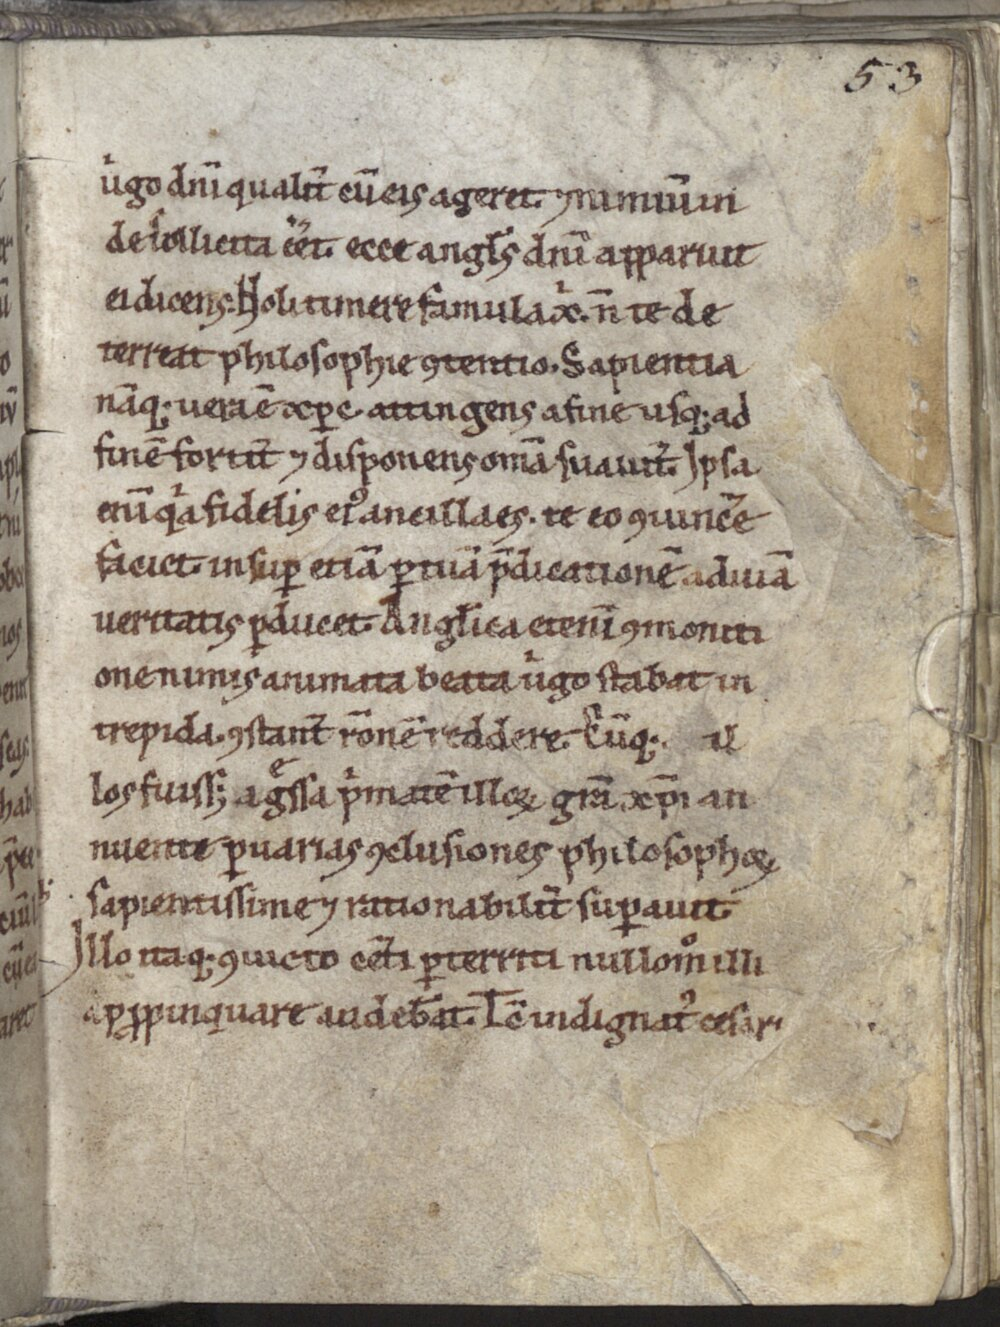 53
u̍go dn̄i qualit̄ cū eis ageret. ⁊ nimiū in
de sollicita eēt. ecce angl̄s dn̄i apparuit
ei dicens. Noli timere famula xp̄i. n̄ te de
terreat philosophie ꝯtentio. Sapientia
nāq; uera ē xp̄c. attingens a fine usq; ad
finē fortit̄ ⁊ disponens om̄a suauit̄. Ipsa
enī q̍a fidelis eiꝰ ancilla es. te eo ꝯuincēe
faciet. insuꝑ etiā ꝑ tuā p̄dicationē ad uiā
ueritatis ꝑducet. Angl̄ica etenī ꝯmoniti
one nimis animata beata u̍go stabat in
trepida. ꝯstant̄ rōnē reddere. Cūq; il
los fuiss; agḡssa p̍matē illoꝝ gr̄a xp̄i an
nuente ꝑ uarias ꝯclusiones philosophoꝝ
sapientissime ⁊ rationabilit̄ suꝑauit.
Illo itaq; ꝯuicto cēt̄i ꝑterriti nullomͦ illi
aꝓpinquare audeb̄at. Tc̄ indignatꝰ cesar